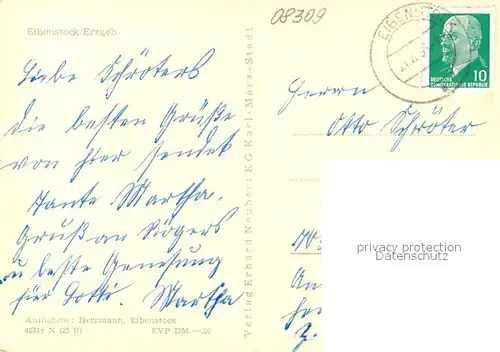 08309
Eibenstock/Erzgeb.
Liebe Schröters
Die besten Grüße
von hier sendet
Tante Martha.
Gruß an Rögers
u beste Genesung
für Lotti. Martha
Aufnahme: Herrmann, Eibenstock
EVP DM —,20
Verlag Erhard Neubert KG Karl-Marx-Stadt
EIBENSTOCK
DEUTSCHE
DEMOKRATISCHE REPUBLIK
10
Herrn
Otto Schröter
An
privacy protection
AnsichtskartenVersand.com